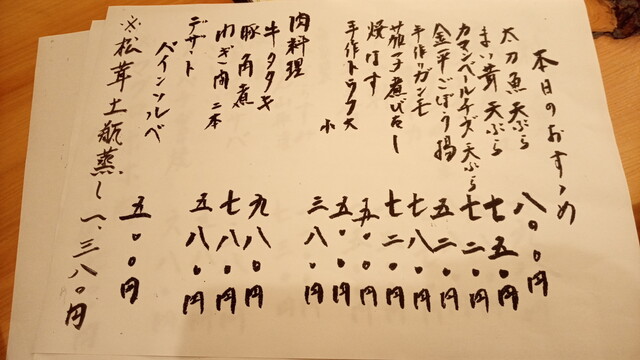 本日のおすすめ
太刀魚天ぷら 八〇〇円
まい茸天ぷら 七五〇円
カマンベールチーズ天ぷら 七二〇円
金平ごぼう揚 五二〇円
手作りガンモ 七八〇円
茄子煮びたし 七二〇円
焼なす 五〇〇円
手作トウフ大 五〇〇円
小 三八〇円
肉料理
牛タタキ 九八〇円
豚角煮 七八〇円
ねぎ肉二本 五八〇円
デザート
パインソルベ 五〇〇円
※松茸土瓶蒸し 一、三八〇円